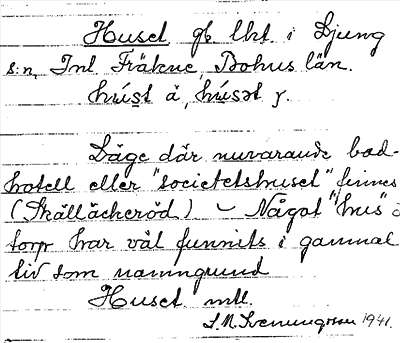 Huset gb lht i Ljung
s:n, Inl. Fräkne, Bohus län.
húst à, húsət y.
Läge där nuvarande bad-
hotell eller "societetshuset" finnes
(Skälläckeröd) – Något "hus" à
torp har väl funnits i gammal
tid som namngrund
Huset mtl.
1941.